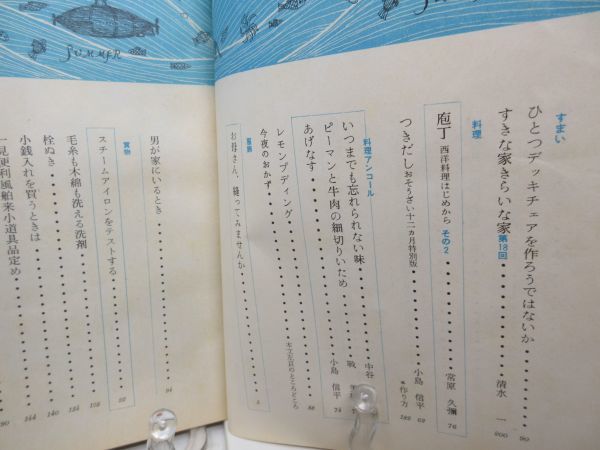 SUMMER
SUMMER
すまい
ひとつデッキチェアを作ろうではないか 90
すきな家きらいな家 第18回 清水 一 200
料理
庖丁 西洋料理はじめから その2 常原 久彌 76
つきだし おそうざい十二カ月特別版 小島 信平 69
*作り方 182
料理アンコール
いつまでも忘れられない味 中谷
ピーマンと牛肉の細切りいため 戰
あげなす 小島 信平 74
レモンプディング 88
今夜のおかず
服飾
お母さん、縫ってみませんか
男が家にいるとき 94
買物
スチームアイロンをテストする 52
毛糸も木綿も洗える洗剤 108
栓ぬき 134
小銭入れを買うときは 140
一見便利風舶来小道具品定め 144
190